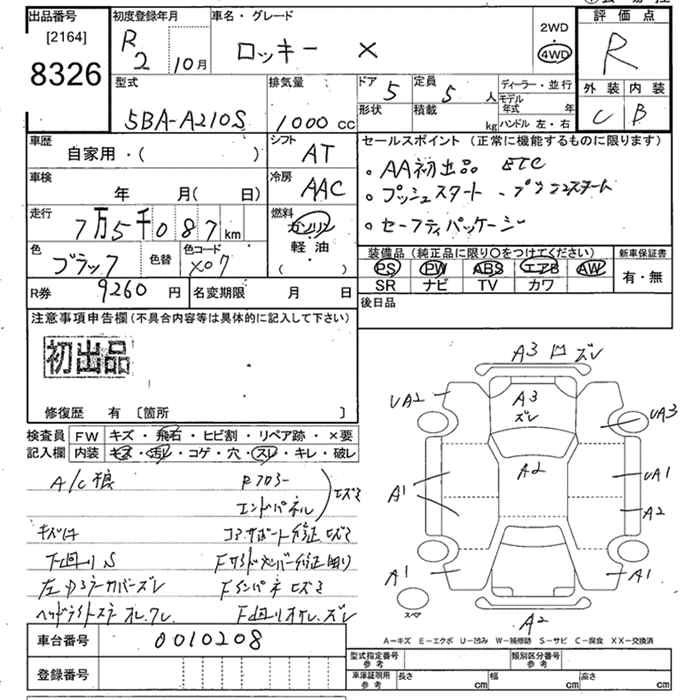 出品番号 初度登録年月 車名・グレード 評価点
[2164]
8326
R2 10月 ロッキー X
2WD
4WD
R
外装 内装
C B
型式 排気量 ドア 定員 ディーラー・並行
5BA-A210S 1000 cc 5 5人
モデル年式 年
形状 積載 kg ハンドル 左・右
車歴 シフト セールスポイント(正常に機能するものに限ります)
自家用・( ) AT
・AA初出品 ETC
車検 冷房
年 月( 日) AAC
・プッシュスタート
走行 燃料
7万5千087km ガソリン
・セーフティパッケージ
軽・油
( )
色 色替 色コード
ブラック X07
装備品(純正品に限り〇をつけてください) 新車保証書
PS PW ABS エアB AW 有・無
SR ナビ TV カワ
R券 9260円 名変期限 月 日
後日品
注意事項申告欄(不具合内容等は具体的に記入して下さい)
初出品
修復歴 有 [箇所 ]
検査員 FW キズ・飛石・ヒビ割・リペア跡・×要
記入欄 内装 キズ・汚レ・コゲ・穴・スレ・キレ・破レ
A3 凹 ズレ
UA2 A3 ズレ UA3
A2
A1 UA1
A2
A1 A1
スペア
A2
A/C損 Rフロアー
エンドパネル
キズ汚 コアサポート修正 ヒズミ
下回りS Fサイドメンバー修正
Fインパネ ヒズミ
F下回リオサレ、ズレ
A-キズ E-エクボ U-凹み W-補修跡 S-サビ C-腐食 XX-交換済
車台番号 0010208
登録番号
型式指定番号 参考 類別区分番号 参考
車庫証明用 参考 長さ cm 幅 cm 高さ cm